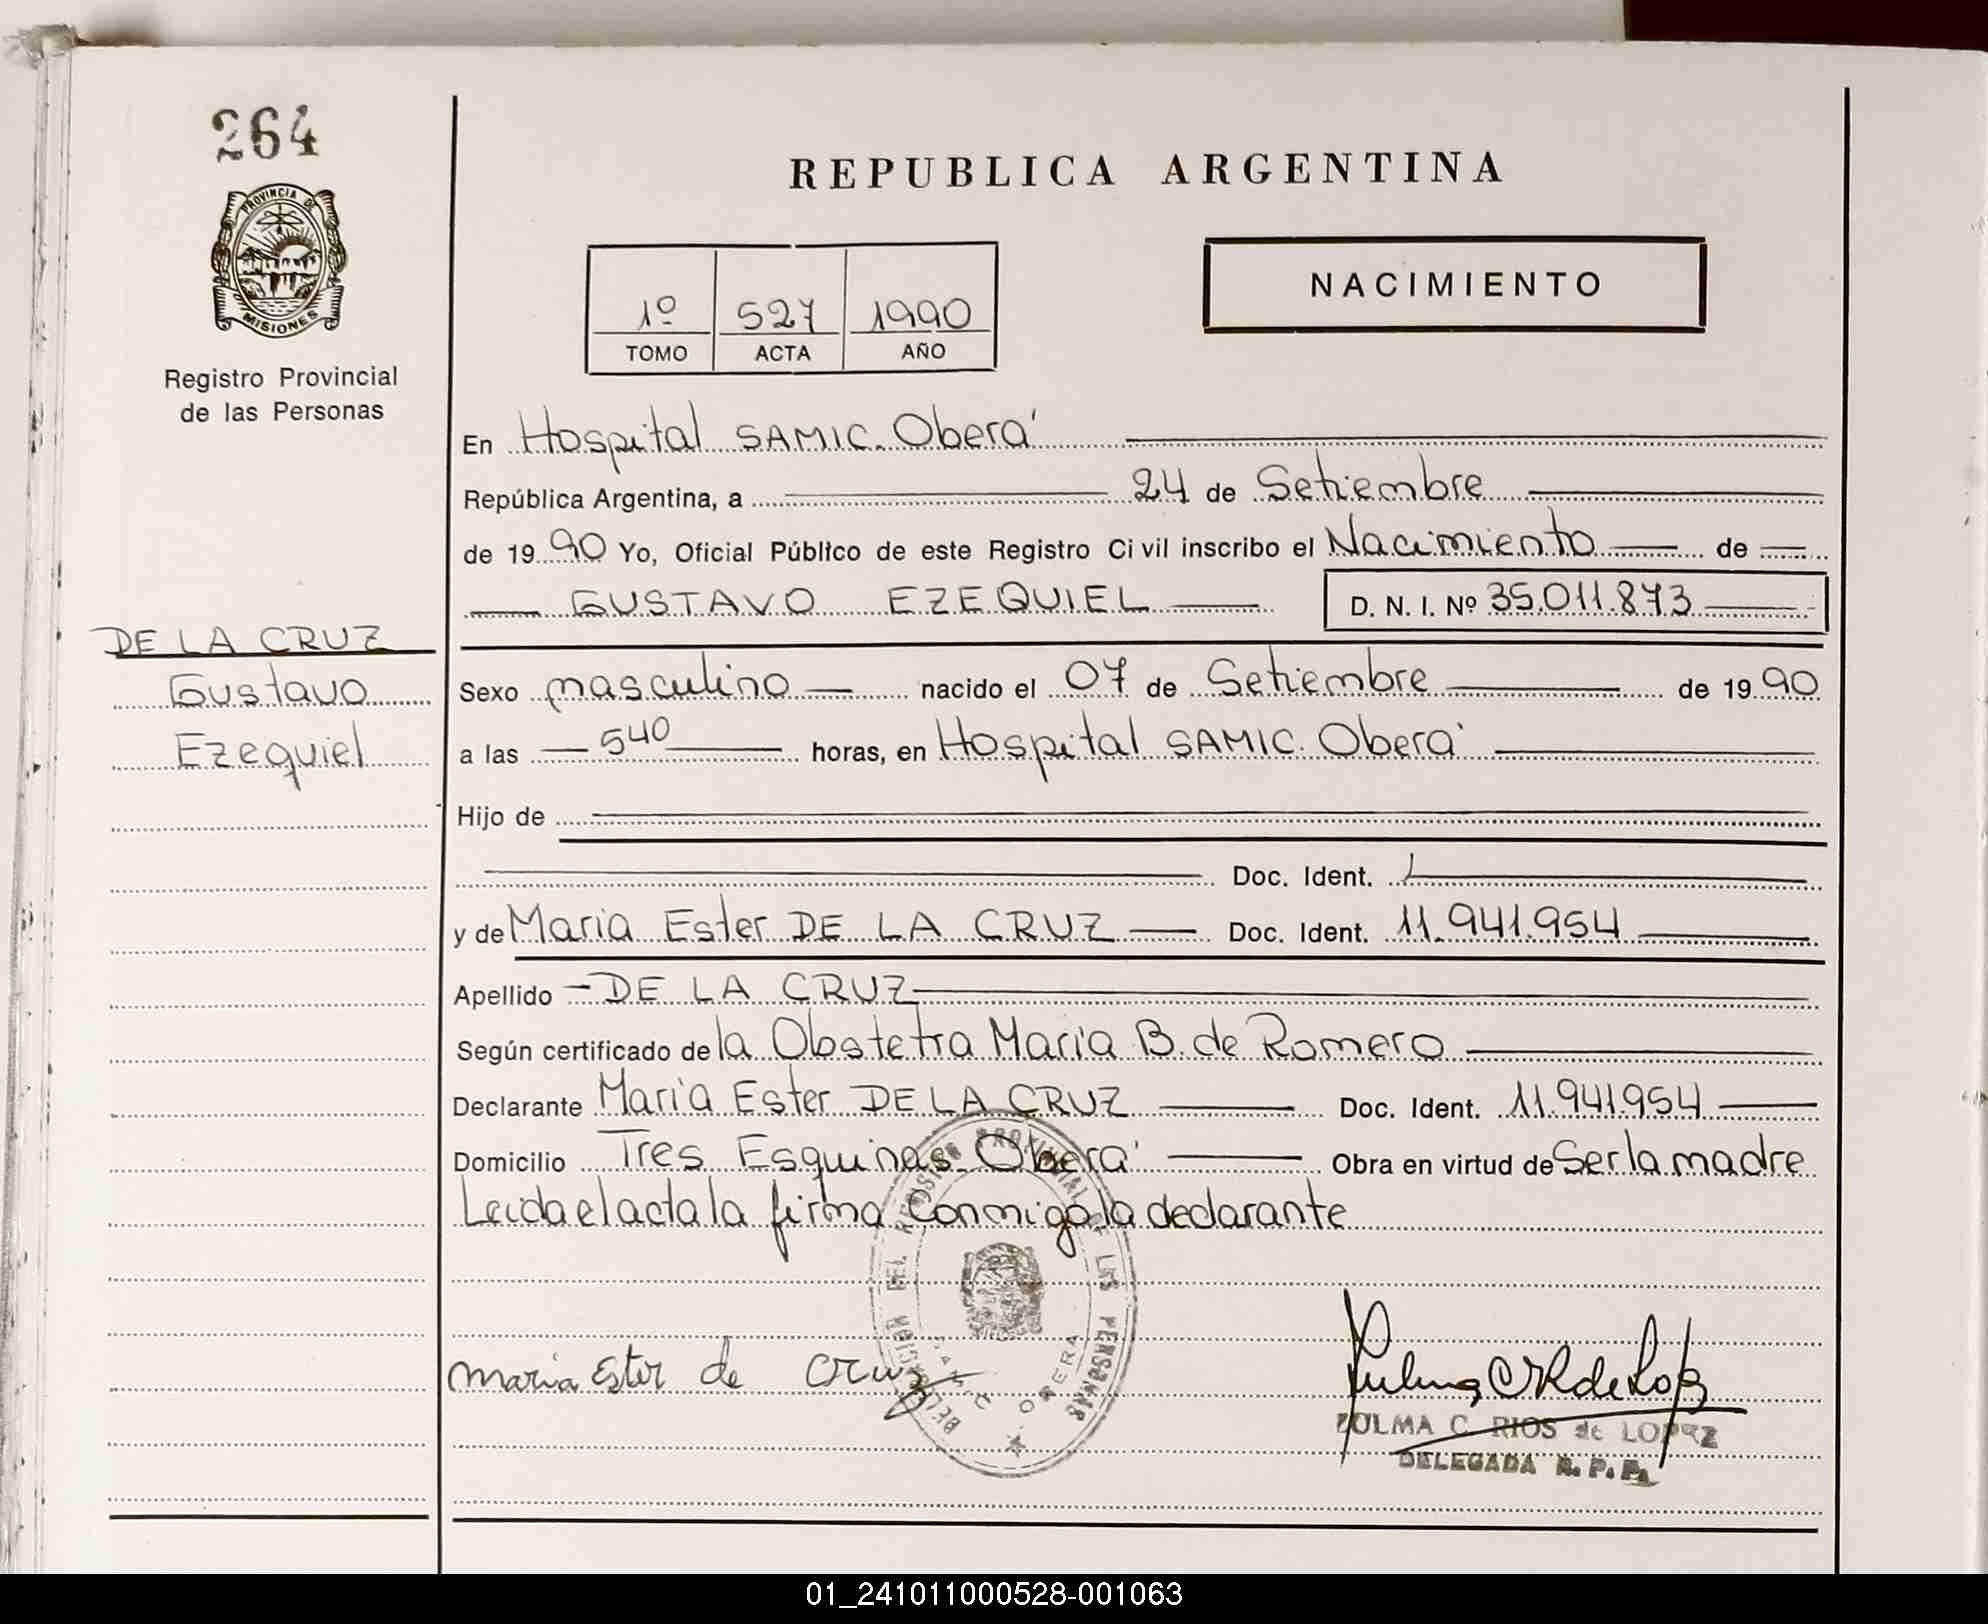 264
PROVINCIA DE
MISIONES
Registro Provincial
de las Personas
REPUBLICA ARGENTINA
1º 527 1990
TOMO ACTA AÑO
NACIMIENTO
En Hospital SAMIC. Oberá
República Argentina, a 24 de Setiembre
de 1990 Yo, Oficial Público de este Registro Civil inscribo el Nacimiento de
GUSTAVO EZEQUIEL D. N. I. Nº 35.011.873
DE LA CRUZ
Gustavo
Ezequiel
Sexo masculino nacido el 07 de Setiembre de 1990
a las 540 horas, en Hospital SAMIC. Oberá
Hijo de
Doc. Ident.
y de Maria Ester DE LA CRUZ Doc. Ident. 11.941.954
Apellido DE LA CRUZ
Según certificado de la Obstetra Maria B. de Romero
Declarante Maria Ester DE LA CRUZ Doc. Ident. 11.941.954
Domicilio Tres Esquinas Oberá Obra en virtud de Ser la madre
Leida el acta la firma conmigo la declarante
DEL REGISTRO PROVINCIAL DE LAS PERSONAS
OBERA
maria Ester de cruz
ZULMA C. RIOS de LOPEZ
DELEGADA R. P. P.
01_241011000528-001063